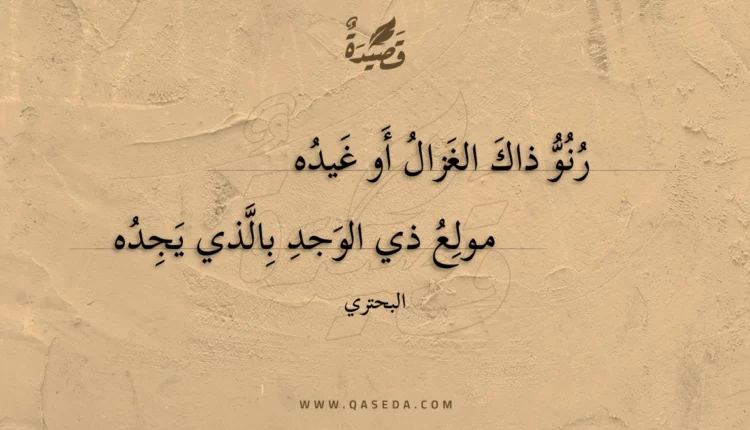 قَصِيْدَةٌ
رُنُوُّ ذاكَ الغَزالُ أَو غَيدُه
مولِعُ ذي الوَجدِ بِالَّذي يَجِدُه
البحتري
WWW.QASEDA.COM